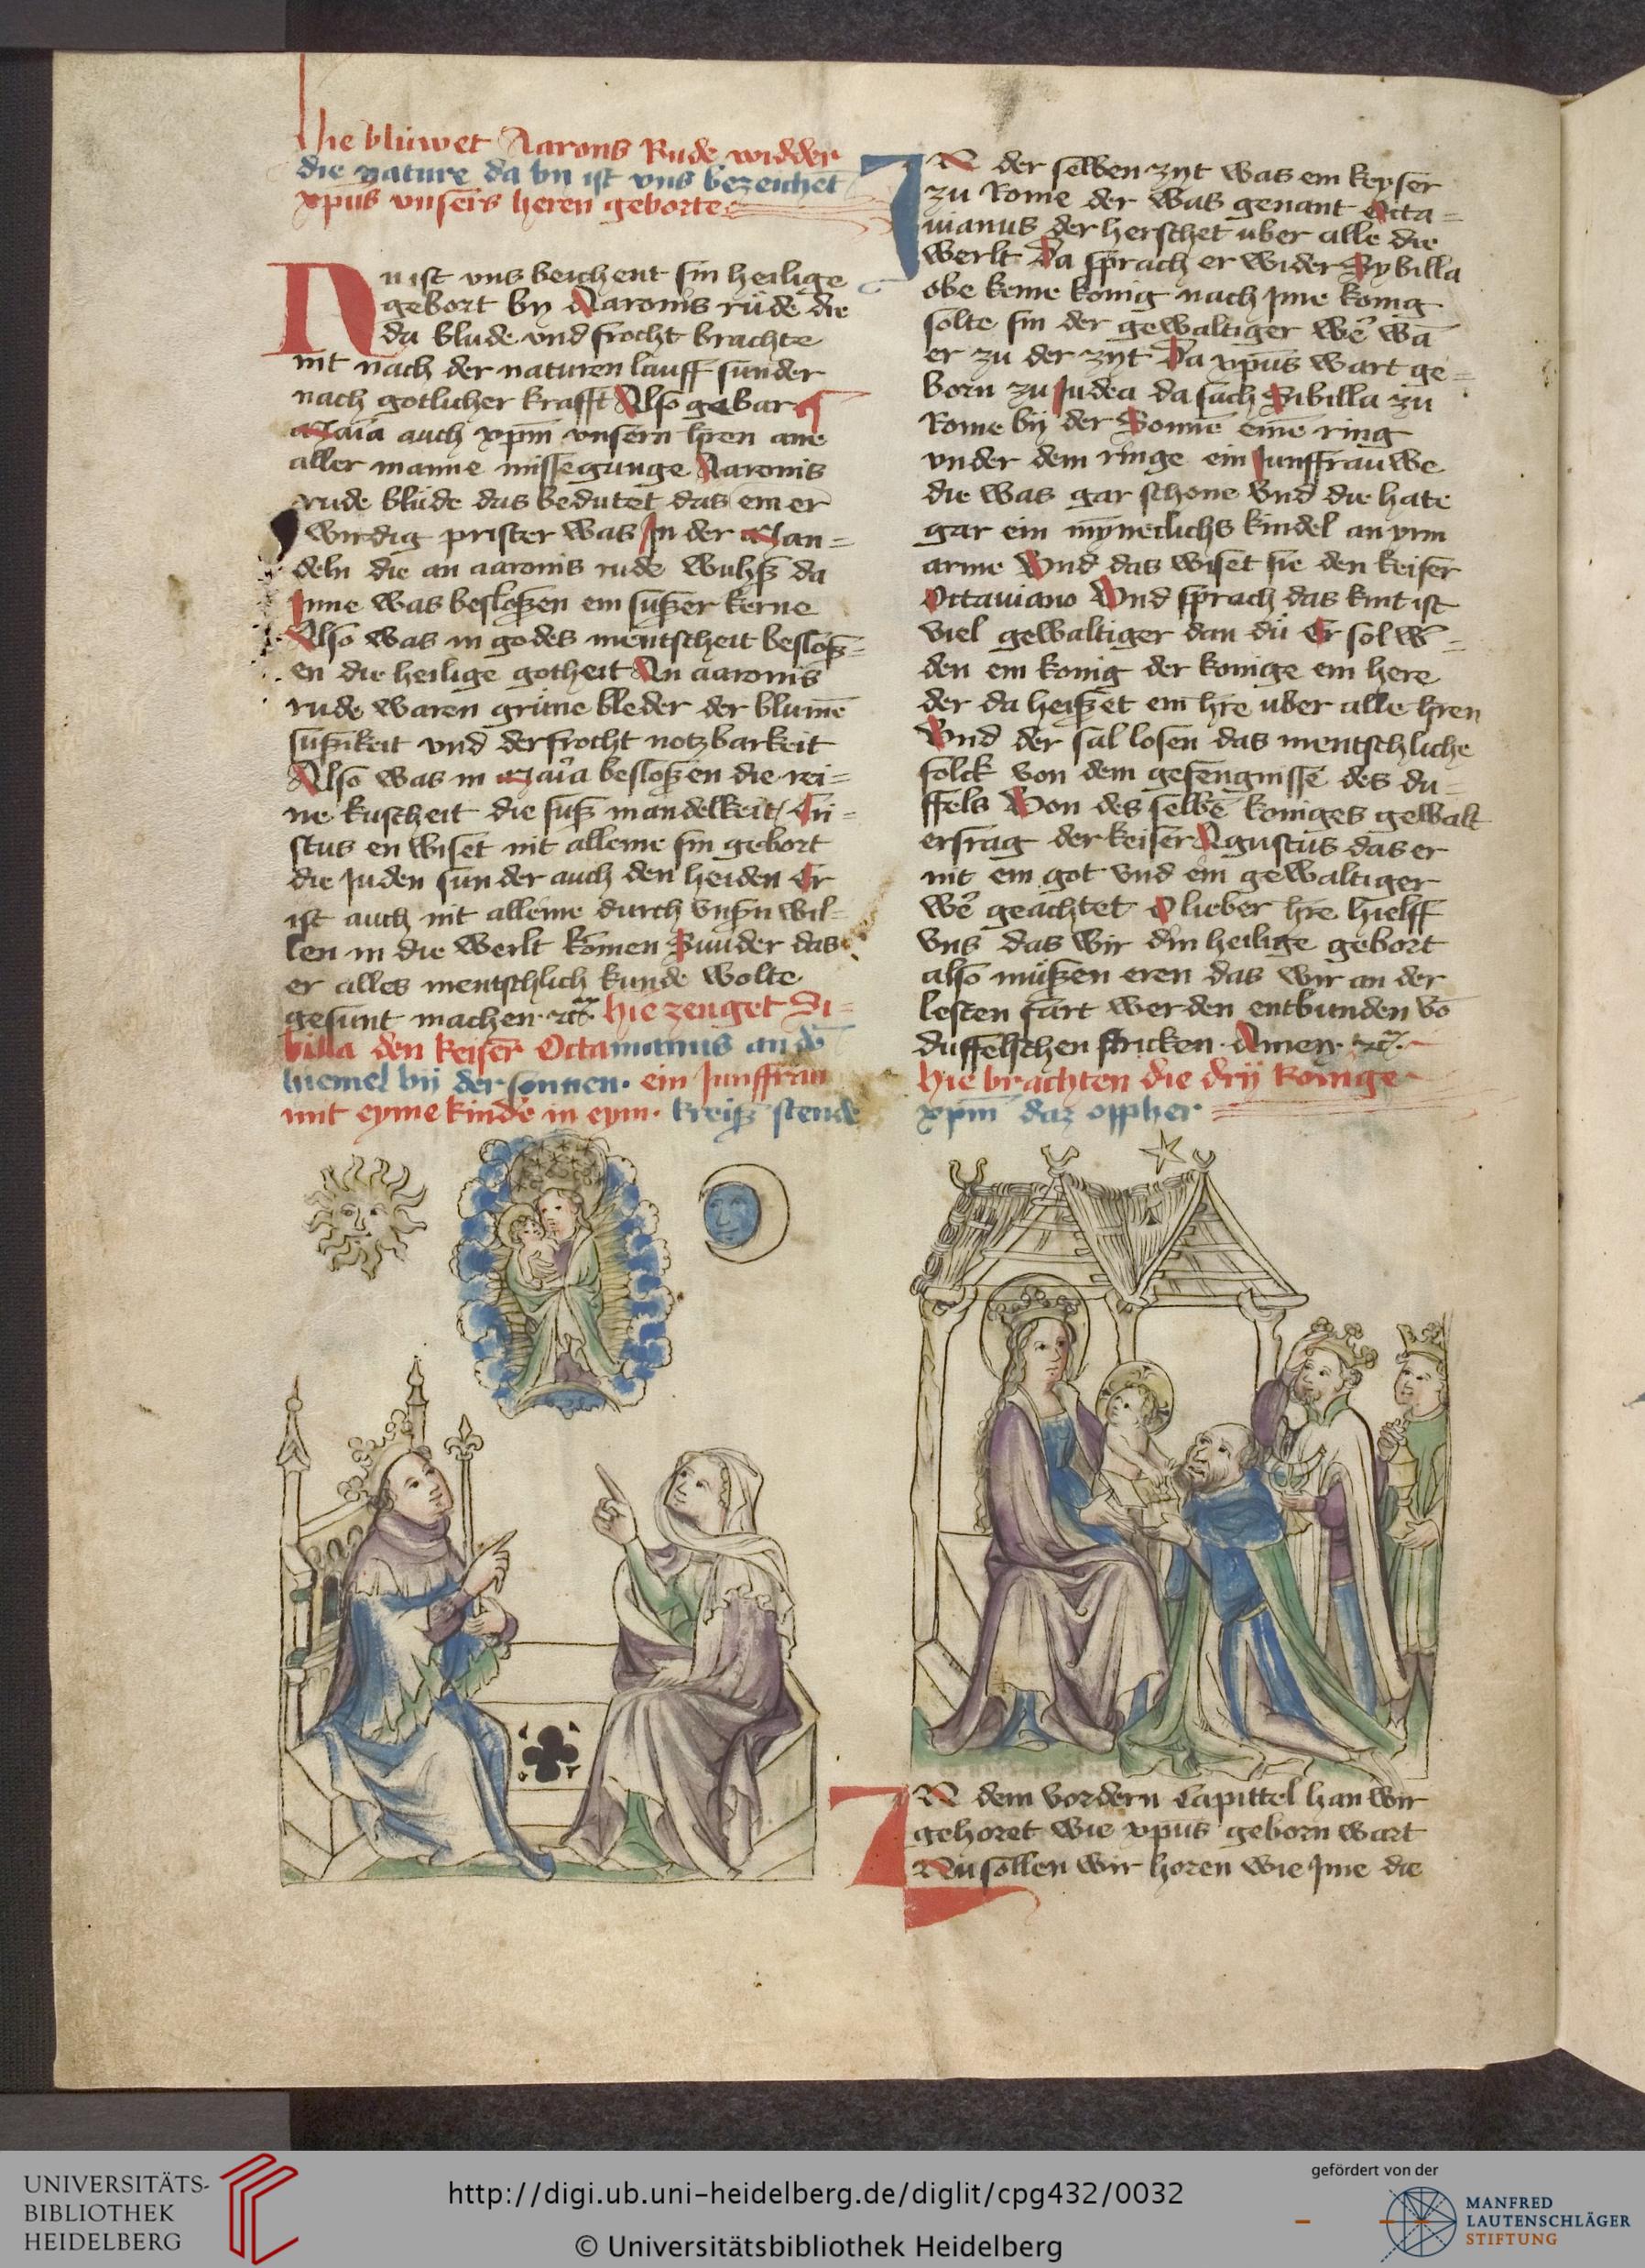 hie blüwet Aarons Rude widder
die nature da vn ist vns bezeichet
xp̄us vnsers heren geborte
Nu ist vns beichent sin heilige
gebort by Aaronis rüde die
da blude vnd frocht brachte
nit nach der naturen lauff sunder
nach gotlicher krafft Also gebar
Maīa auch xp̄m vnsern hren ane
aller manne missegunge Aaronis
rude blüde das bedutet das em er
wirdig prister was Jn der Man=
deln die an aaronis rude wuhß da
Jnne was besloßen em sußer kerne
Also was in godes mentscheit besloß=
en die heilige gotheit An aaronis
rude waren grüne bleder der blume
sußikeit vnd der frocht notzbarkeit
Also was in Maīa besloßen die rei=
ne kuscheit die suß mandelkeit Cri=
stus en wiset nit alleine sin gebort
die Juden sunder auch den heiden Er
ist auch nit alleine durch vnßn wil=
len in die werlt komen Sunder das
er alles mentschlich kunde wolte
gesunt machen ꝛc̄ hie zeuget Si=
billa den keiser Octamanus an dē
hiemel bij der sonnen. ein Junffrau
mit eyme kinde in eym. kreiß stende
JN der selben zyt was em keyser
zu Rome der was genant Octa=
uianus der herschet uber alle die
werlt Da sprach er wider Sybilla
obe keme konig nach Jme konig
solte sin der gewaltiger we᷑ wā
er zu der zyt Da xp̄us wart ge=
born zu Judea da sach Sibilla zu
Rome bij der Sonne eine ring
vnder dem ringe ein Junffrauwe
die was gar schone vnd die hate
gar ein myneclichs kindel an yrm
arme Vnd das wiset sie den keiser
Octauiano Vnd sprach das kint ist
viel gewaltiger dan dü Er sol w᷑=
den em konig der konige em here
der da heißet em hre uber alle hren
Vnd der sal losen das mentschliche
folck von dem gefengnisse des du=
ffels Von des selbē koniges gewalt
erfrag der keiser Agustus das er
nit em got vnd em gewaltiger
we᷑ geachtet O lieber hre hielff
vns das wir din heilige gebort
also müßen eren das wir an der
lesten fart werden entbunden vō
duffelschen stricken. Amen ꝛc̄.
hie brachten die drij konige
xp̄m daz oppher
JN dem vordern Capittel han wir
gehoret wie xp̄us geborn wart
Nu sollen wir horen wie Jme die
UNIVERSITÄTS-
BIBLIOTHEK
HEIDELBERG
http://digi.ub.uni-heidelberg.de/diglit/cpg432/0032
© Universitätsbibliothek Heidelberg
gefördert von der
MANFRED
LAUTENSCHLÄGER
STIFTUNG